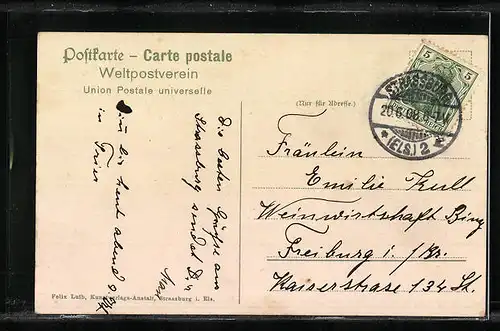 Postkarte – Carte postale
Weltpostverein
Union Postale universelle
(Nur für Adresse.)
5 5
STRASSBURG
20.6.08.
* (ELS.) 2 *
Die besten Grüsse aus
Strassburg sendet Dir
Bin bis heut abend
in Trier
Fräulein
Emilie Kult
Weinwirtschaft
Freiburg i/Br.
Kaiserstrasse 134 St.
Felix Luib, Kunstverlags-Anstalt, Strassburg i. Els.